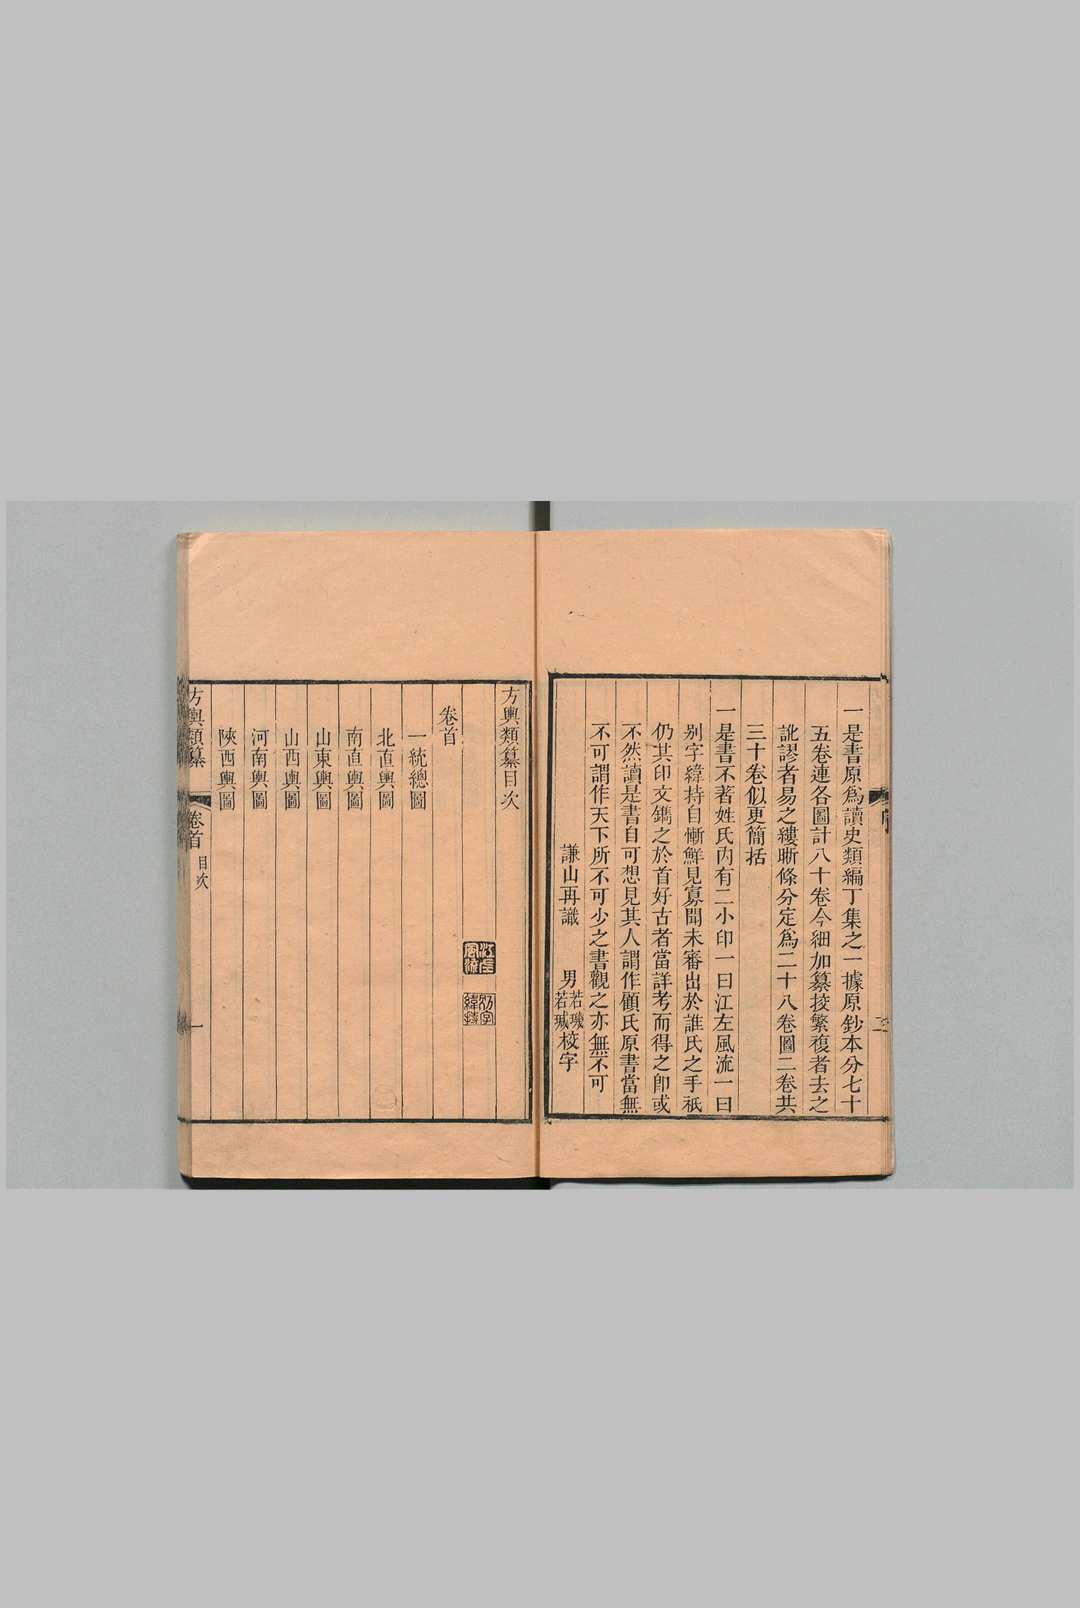 一是書原爲讀史類編丁集之一據原鈔本分七十
五卷連各圖計八十卷今細加纂按繁複者去之
訛謬者易之縷晰條分定爲二十八卷圖二卷共
三十卷似更簡括
一是書不著姓氏內有二小印一曰江左風流一曰
别字緯持自慚鮮見寡聞未審出於誰氏之手祇
仍其印文鐫之於首好古者當詳考而得之卽或
不然讀是書自可想見其人謂作顧氏原書當無
不可謂作天下所不可少之書觀之亦無不可
謙山再識 男若璣若珹校字
方輿類纂目次
江左風流 別字緯持
卷首
一統總圖
北直輿圖
南直輿圖
山東輿圖
山西輿圖
河南輿圖
陝西輿圖
方輿類纂 卷首 目次 一